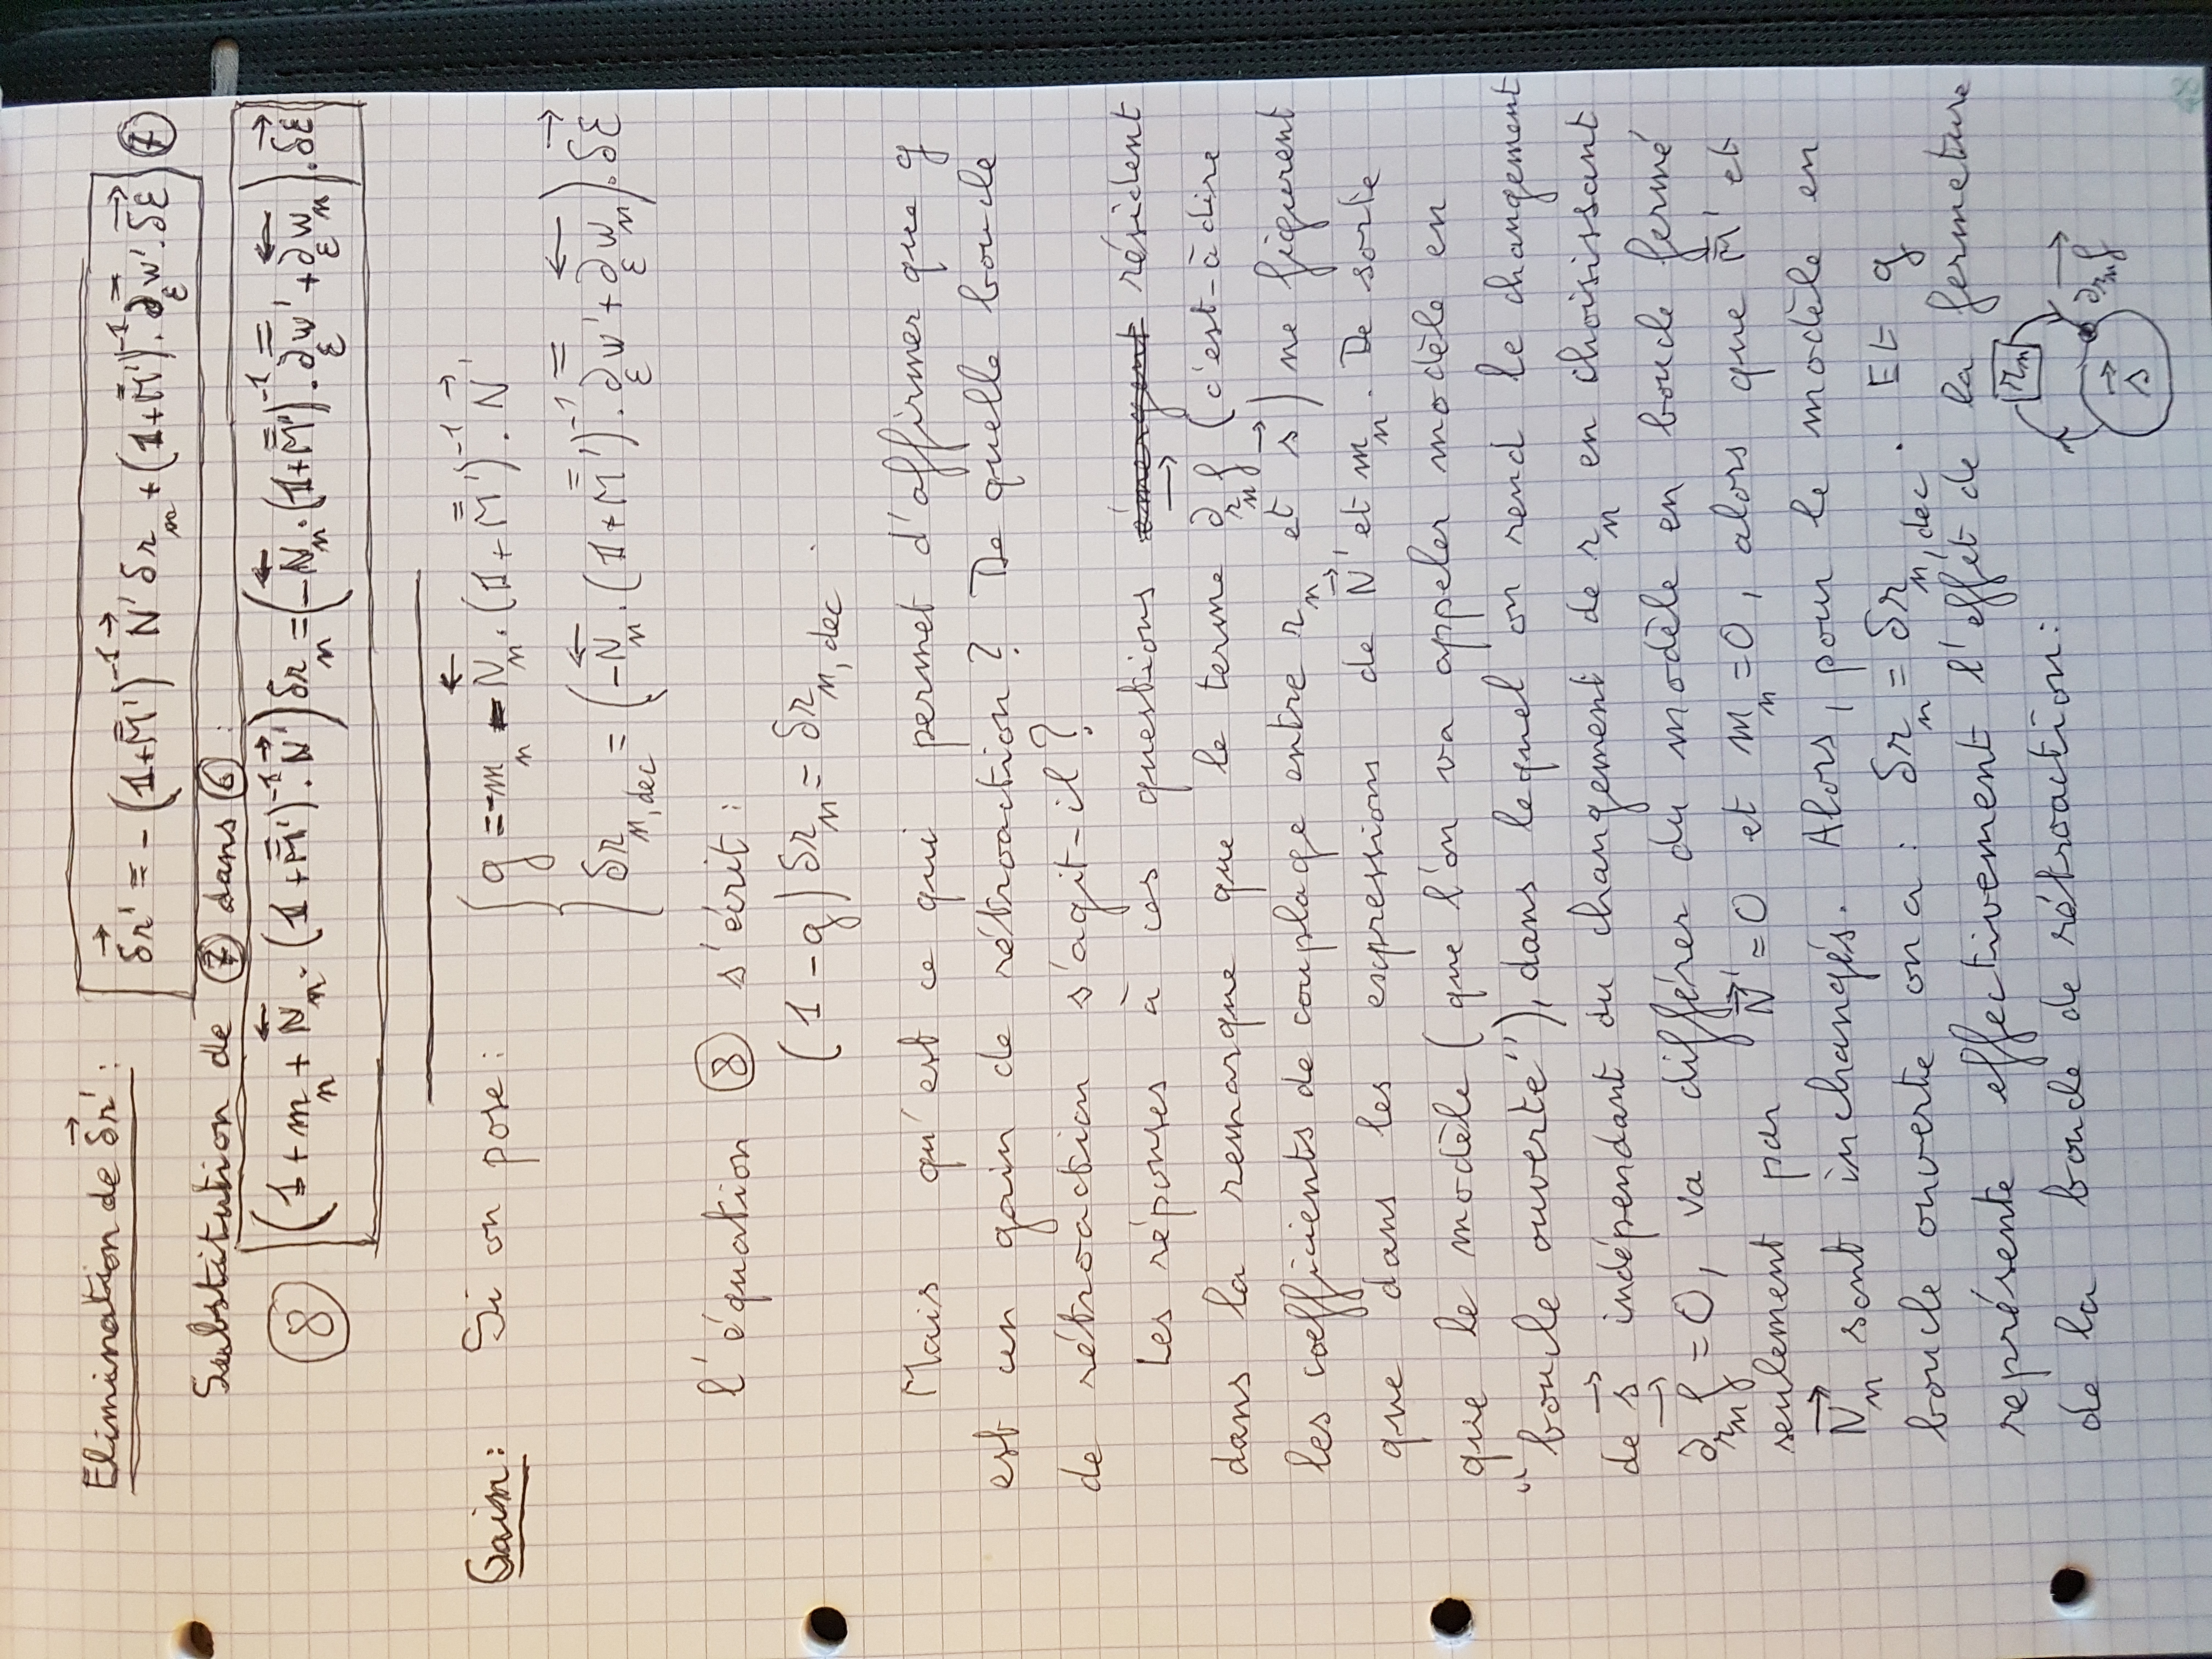 Elimination de δr⃗' :
δr⃗' = - (1+M̿')⁻¹ N⃗' δr_n + (1+M̿')⁻¹ . ∂_ε w̿' . δε⃗ ⑦
Substitution de ⑦ dans ⑥ :
⑧ (1 + m_n + N⃖_n . (1+M̿')⁻¹ . N⃗') δr_n = (-N⃖_n . (1+M̿')⁻¹ . ∂_ε w̿' + ∂_ε w⃖_n) . δε⃗
Gain : Si on pose :
g = -m_n - N⃖_n . (1+M̿')⁻¹ . N⃗'
δr_n,dec = (-N⃖_n . (1+M̿')⁻¹ . ∂_ε w̿' + ∂_ε w⃖_n) . δε⃗
l'équation ⑧ s'écrit :
(1 - g) δr_n = δr_n,dec .
Mais qu'est ce qui permet d'affirmer que g
est un gain de rétroaction ? De quelle boucle
de rétroaction s'agit-il ?
Les réponses à ces questions émergent résident
dans la remarque que le terme ∂_{r_n} f⃗ (c'est-à-dire
les coefficients de couplage entre r_n et s⃗) ne figurent
que dans les expressions de N⃗' et m_n. De sorte
que le modèle (que l'on va appeler modèle en
"boucle ouverte"), dans lequel on rend le changement
de s⃗ indépendant du changement de r_n en choisissant
∂_{r_n} f⃗ = 0, va différer du modèle en boucle fermé
seulement par N⃗' = 0 et m_n = 0, alors que M̿' et
N⃗_n sont inchangés. Alors, pour le modèle en
boucle ouverte on a : δr_n = δr_n,dec . Et g
représente effectivement l'effet de la fermeture
de la boucle de rétroaction :
r_n
∂_{r_n} f⃗
s⃗